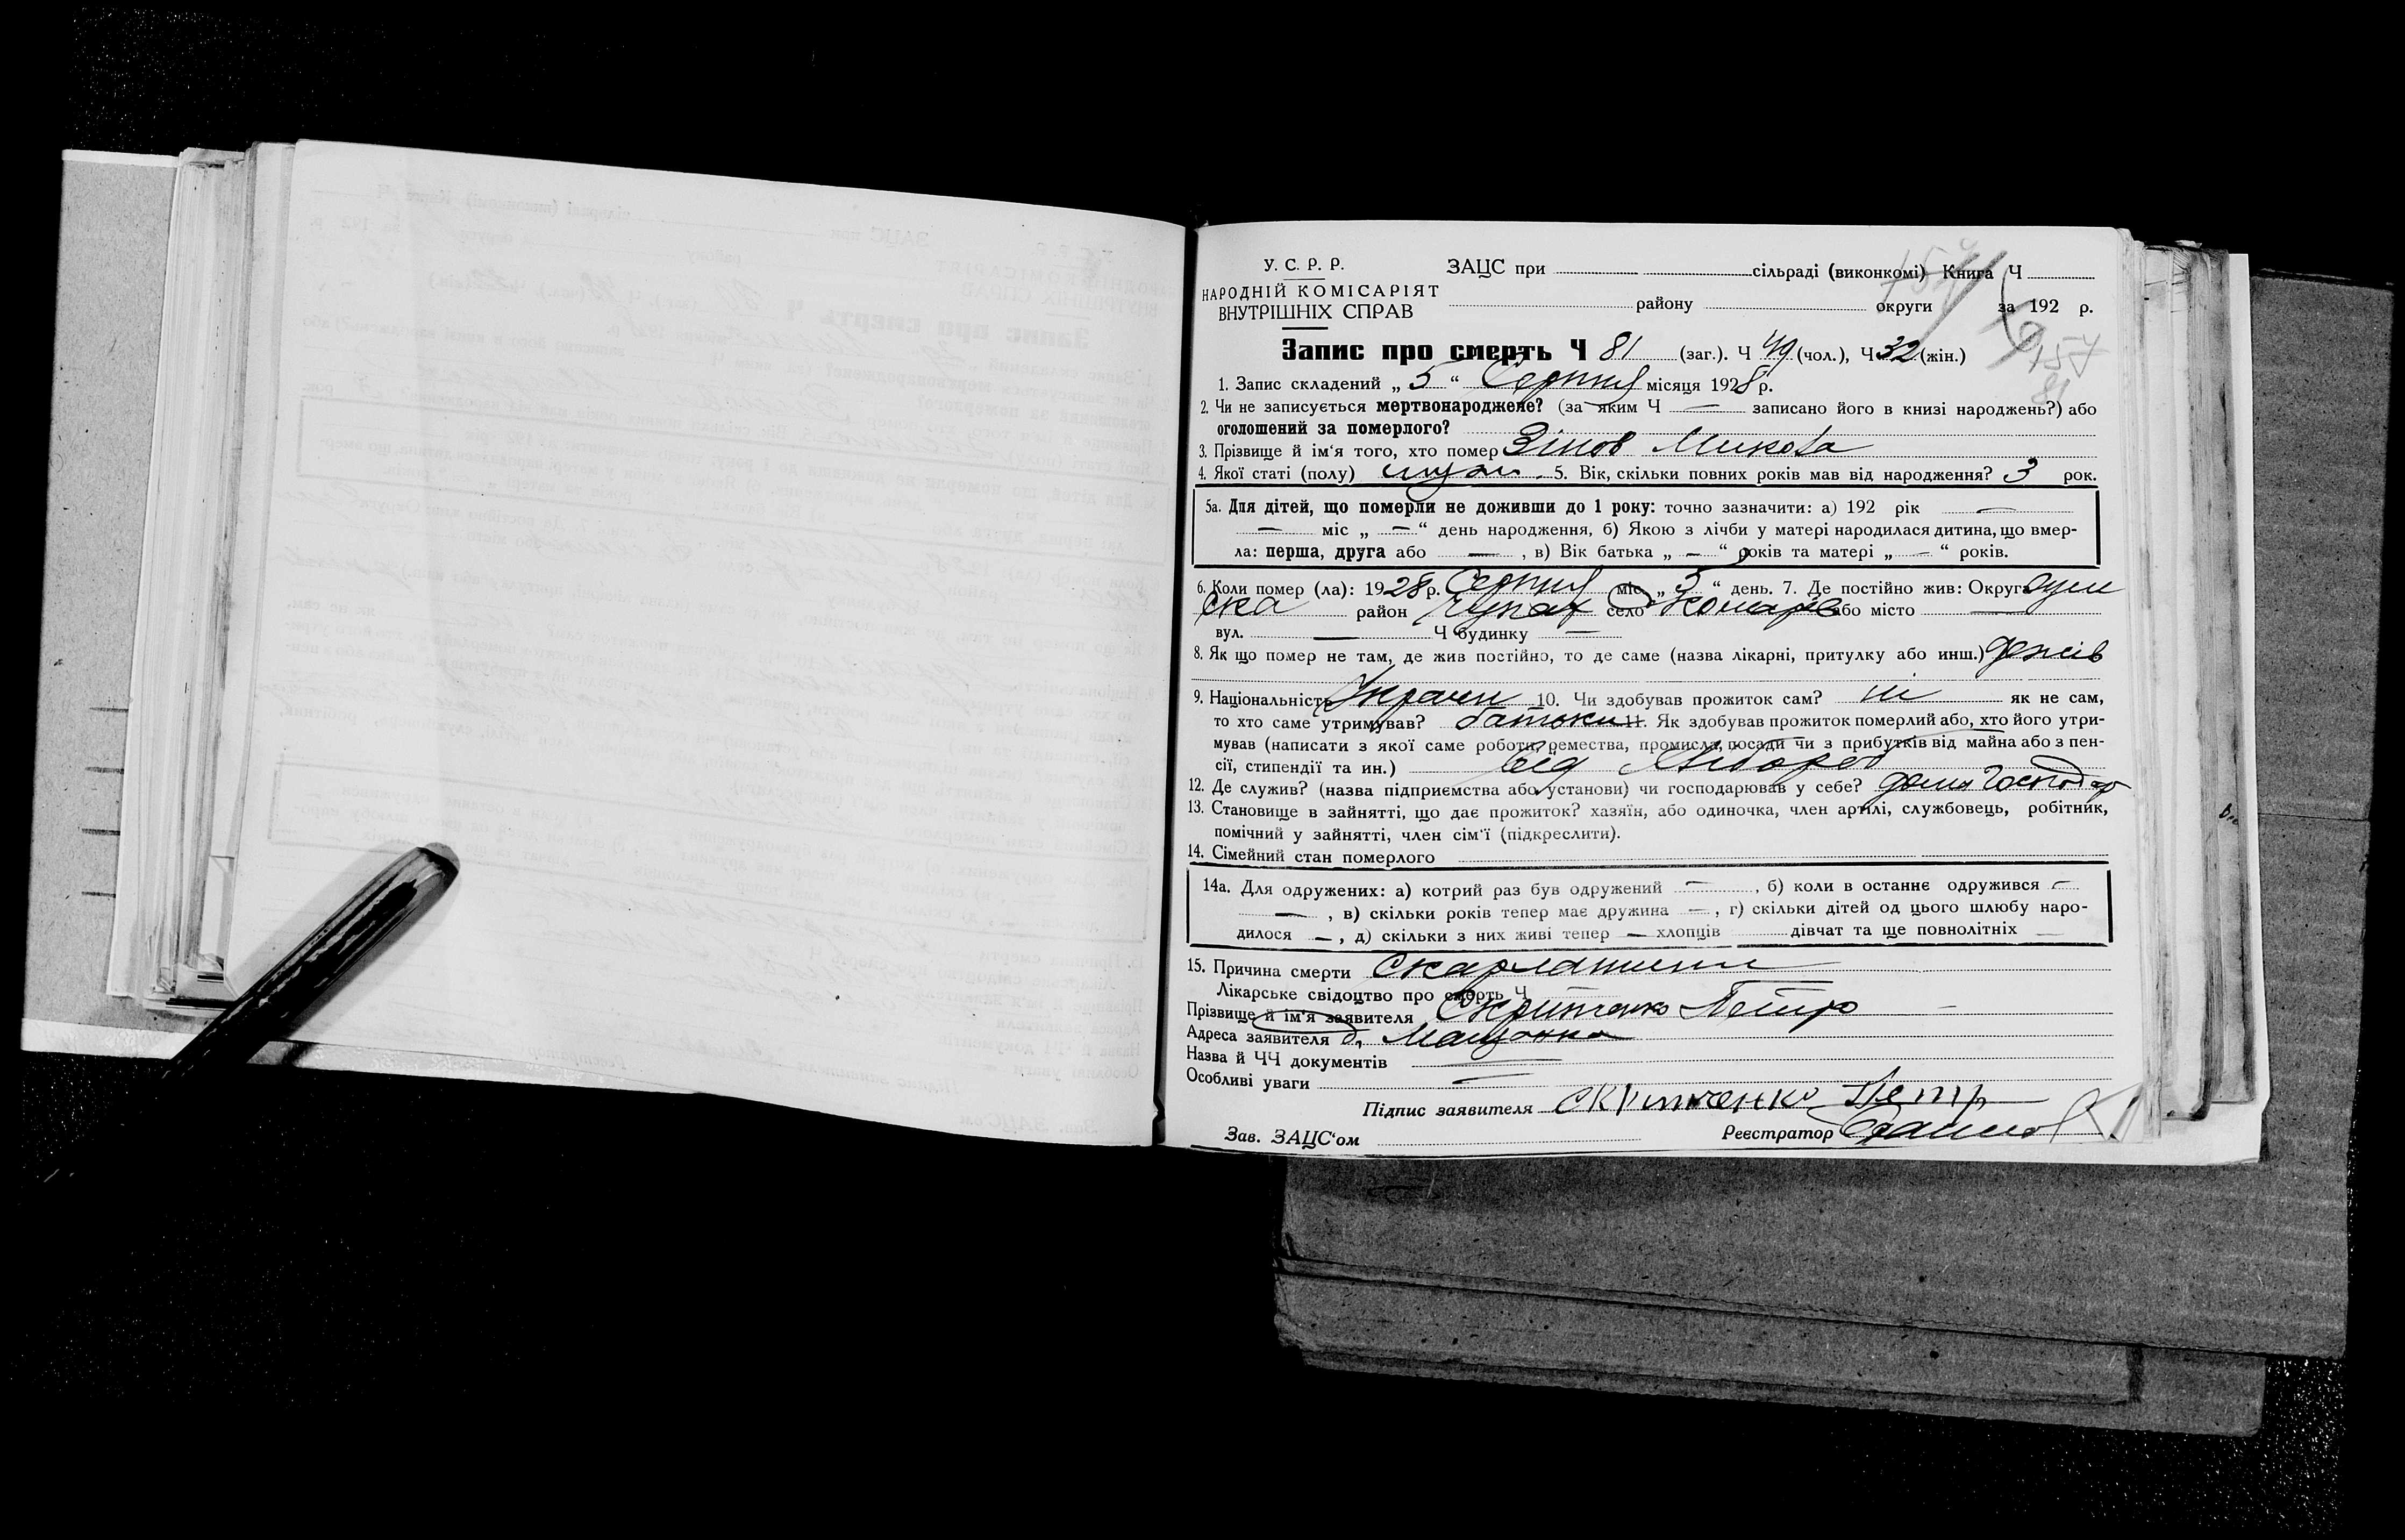 У. С. Р. Р.
НАРОДНІЙ КОМІСАРІЯТ
ВНУТРІШНІХ СПРАВ
ЗАЦС при сільраді (виконкомі) Книга Ч
району округи за 192 р.
154
81
Запис про смерть Ч 81 (заг.). Ч 49 (чол.), Ч 32 (жін.)
1. Запис складений „ 5 “ Серпня місяця 1928 р.
2. Чи не записується мертвонароджене? (за яким Ч — записано його в книзі народжень?) або
оголошений за померлого?
3. Прізвище й ім'я того, хто помер Зінов Микола
4. Якої статі (полу) муж. 5. Вік, скільки повних років мав від народження? 3 рок.
5а. Для дітей, що померли не доживши до 1 року: точно зазначити: а) 192 рік —
— міс „ — “ день народження, б) Якою з лічби у матері народилася дитина, що вмер-
ла: перша, друга або — , в) Вік батька „ — “ років та матері „ — “ років.
6. Коли помер (ла): 1928 р. Серпня міс „ 5 “ день. 7. Де постійно жив: Округ
ска район село або місто —
вул. — Ч будинку —
8. Як що помер не там, де жив постійно, то де саме (назва лікарні, притулку або инш.) де жив
9. Національність Украін 10. Чи здобував прожиток сам? ні як не сам,
то хто саме утримував? батьки 11. Як здобував прожиток померлий або, хто його утри-
мував (написати з якої саме роботи, ремества, промисла, посади чи з прибутків від майна або з пен-
сії, стипендії та ин.) Від
12. Де служив? (назва підприємства або установи) чи господарював у себе? дома господар
13. Становище в зайнятті, що дає прожиток? хазяїн, або одиночка, член артілі, службовець, робітник,
помічний у зайнятті, член сім'ї (підкреслити).
14. Сімейний стан померлого
14а. Для одружених: а) котрий раз був одружений — , б) коли в останнє одружився —
— , в) скільки років тепер має дружина — , г) скільки дітей од цього шлюбу наро-
дилося — , д) скільки з них живі тепер — хлопців дівчат та ще повнолітніх —
15. Причина смерти Скарлатина
Лікарське свідоцтво про смерть Ч —
Прізвище й ім'я заявителя Скритченко Петро
Адреса заявителя
Назва й ЧЧ документів —
Особливі уваги —
Підпис заявителя Скритченко Петр
Зав. ЗАЦС'ом Реєстратор